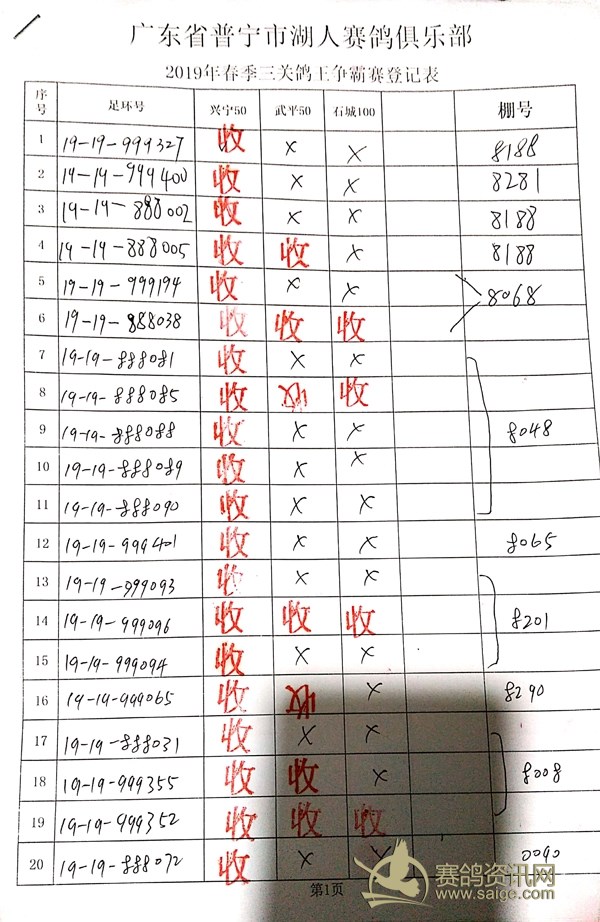 广东省普宁市湖人赛鸽俱乐部
2019年春季三关鸽王争霸赛登记表
序号 足环号 兴宁50 武平50 石城100 棚号
1 19-19-999327 收 × × 8188
2 19-19-999400 收 × × 8281
3 19-19-888002 收 × × 8188
4 19-19-888005 收 收 × 8188
5 19-19-999194 收 × × 8068
6 19-19-888038 收 收 收
7 19-19-888081 收 × ×
8 19-19-888085 收 收 收
9 19-19-888088 收 × × 8048
10 19-19-888089 收 × ×
11 19-19-888090 收 × ×
12 19-19-999401 收 × × 8065
13 19-19-999093 收 × ×
14 19-19-999096 收 收 收 8201
15 19-19-999094 收 × ×
16 19-19-999065 收 收 × 8290
17 19-19-888031 收 × ×
18 19-19-999355 收 收 × 8008
19 19-19-999352 收 收 收
20 19-19-888072 收 × ×
第1页
赛鸽资讯网
www.saige.com